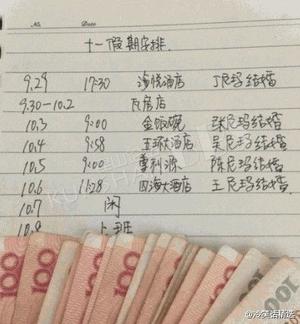 No.
Date
十一假期安排.
9.29 17:30 海悦酒店 丁尼玛结婚
9.30-10.2 瓦房店
10.3 9:00 金饭碗 张尼玛结婚
10.4 9:58 王环大酒店 吴尼玛结婚
10.5 9:00 粤利源 陈尼玛结婚
10.6 11:28 四海大酒店 王尼玛结婚
10.7 闲
10.8 上班
100
100
100
100
100